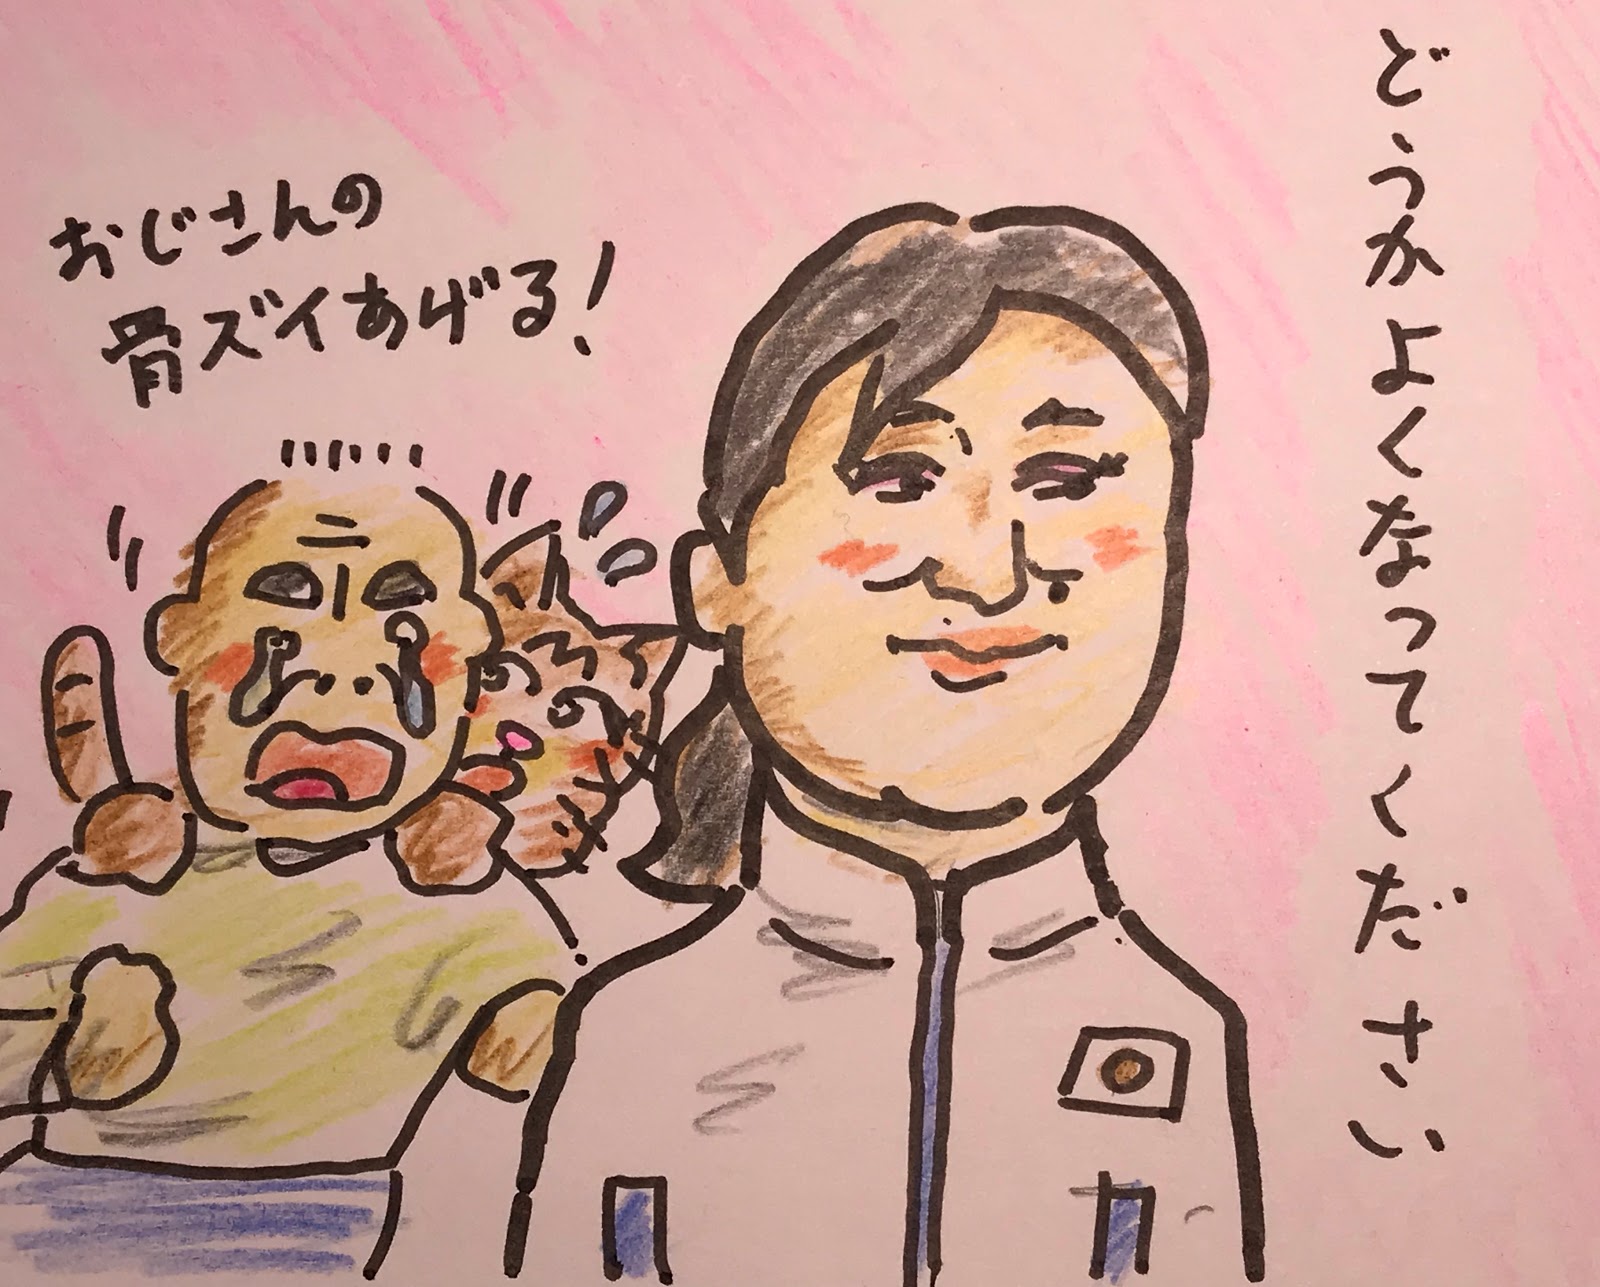 どうかよくなってください
おじさんの
骨ズイあげる!